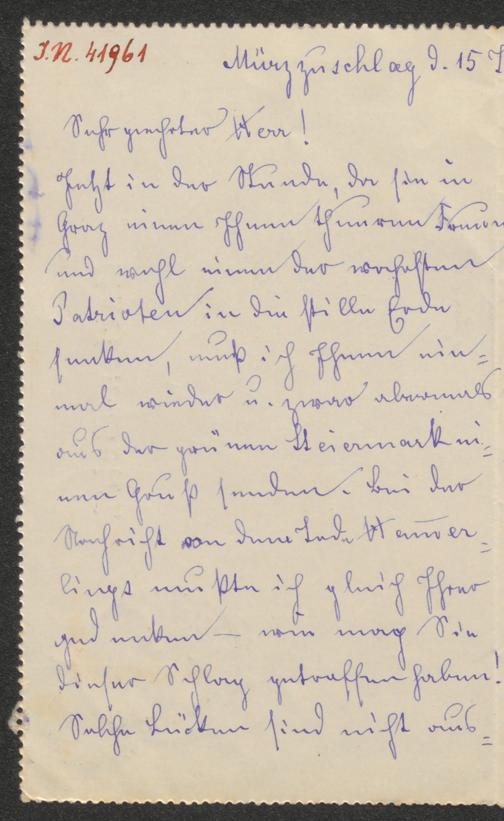 J.N. 41961
Mürzzuschlag d. 15
Sehr geehrter Herr!
Jetzt in der Stunde, da sie in
Graz einen Ihnen theuren Freun
und wohl einen der wahrhaften
Patrioten in die stille Erde
senken, muß ich Ihnen ein=
mal wieder u. zwar abermals
aus der grünen Steiermark ei=
nen Gruß senden. Bei der
Nachricht von dem Tode Hamer=
lings mußte ich gleich Ihrer
gedenken – wie mag Sie
dieser Schlag getroffen haben!
Solche Lücken sind nicht aus=